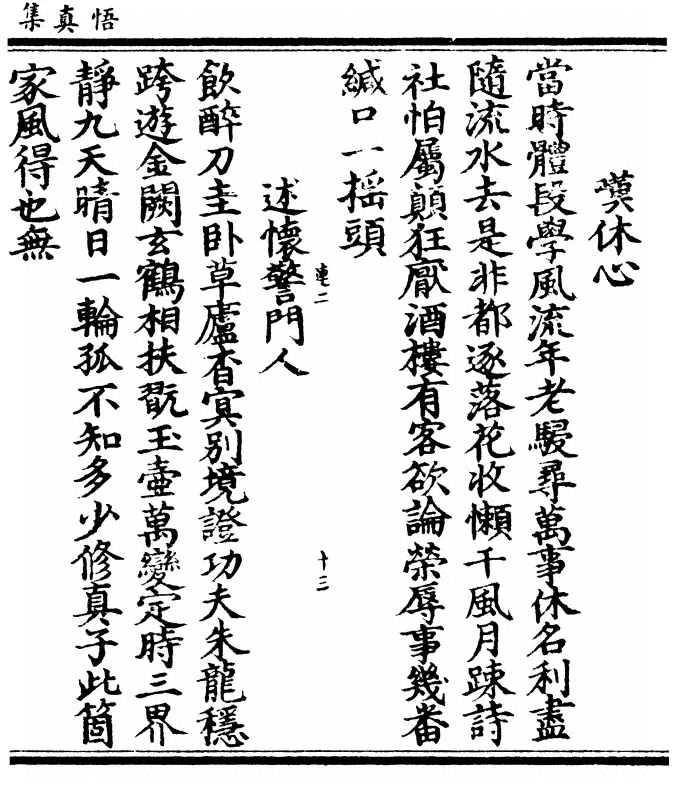 悟真集
嘆休心
當時體段學風流年老駸尋萬事休名利盡
隨流水去是非都逐落花收懶干風月踈詩
社怕屬顛狂厭酒樓有客欲論榮辱事幾畨
緘口一摇頭
連二 十三
述懷警門人
飲醉刀圭卧草廬杳冥別境證功夫朱龍穩
跨遊金闕玄鶴相扶翫玉壺萬變定時三界
靜九天晴日一輪孤不知多少修真子此箇
家風得也無